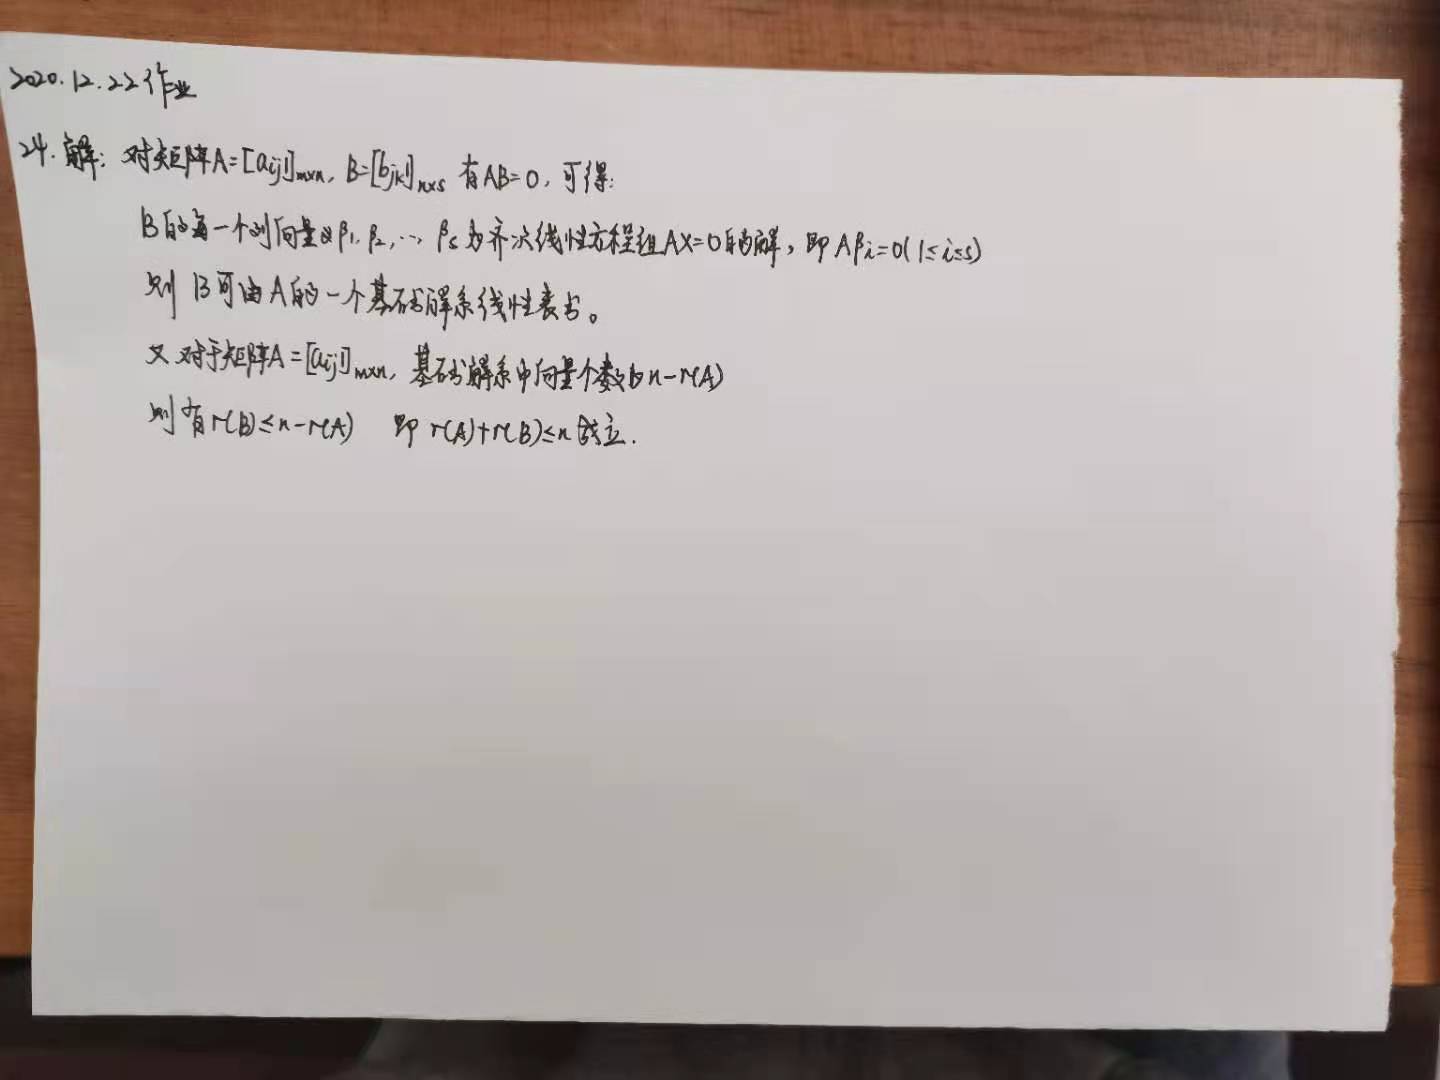 2020.12.22作业
24. 解: 对矩阵A=[aij]m×n, B=[bjk]n×s 有AB=0, 可得:
B的每一个列向量β1, β2, ..., βs 为齐次线性方程组AX=0的解, 即Aβi=0(1≤i≤s)
则 B可由A的一个基础解系线性表出。
又对于矩阵A=[aij]m×n, 基础解系中向量个数为n-r(A)
则有r(B)≤n-r(A) 即 r(A)+r(B)≤n成立.